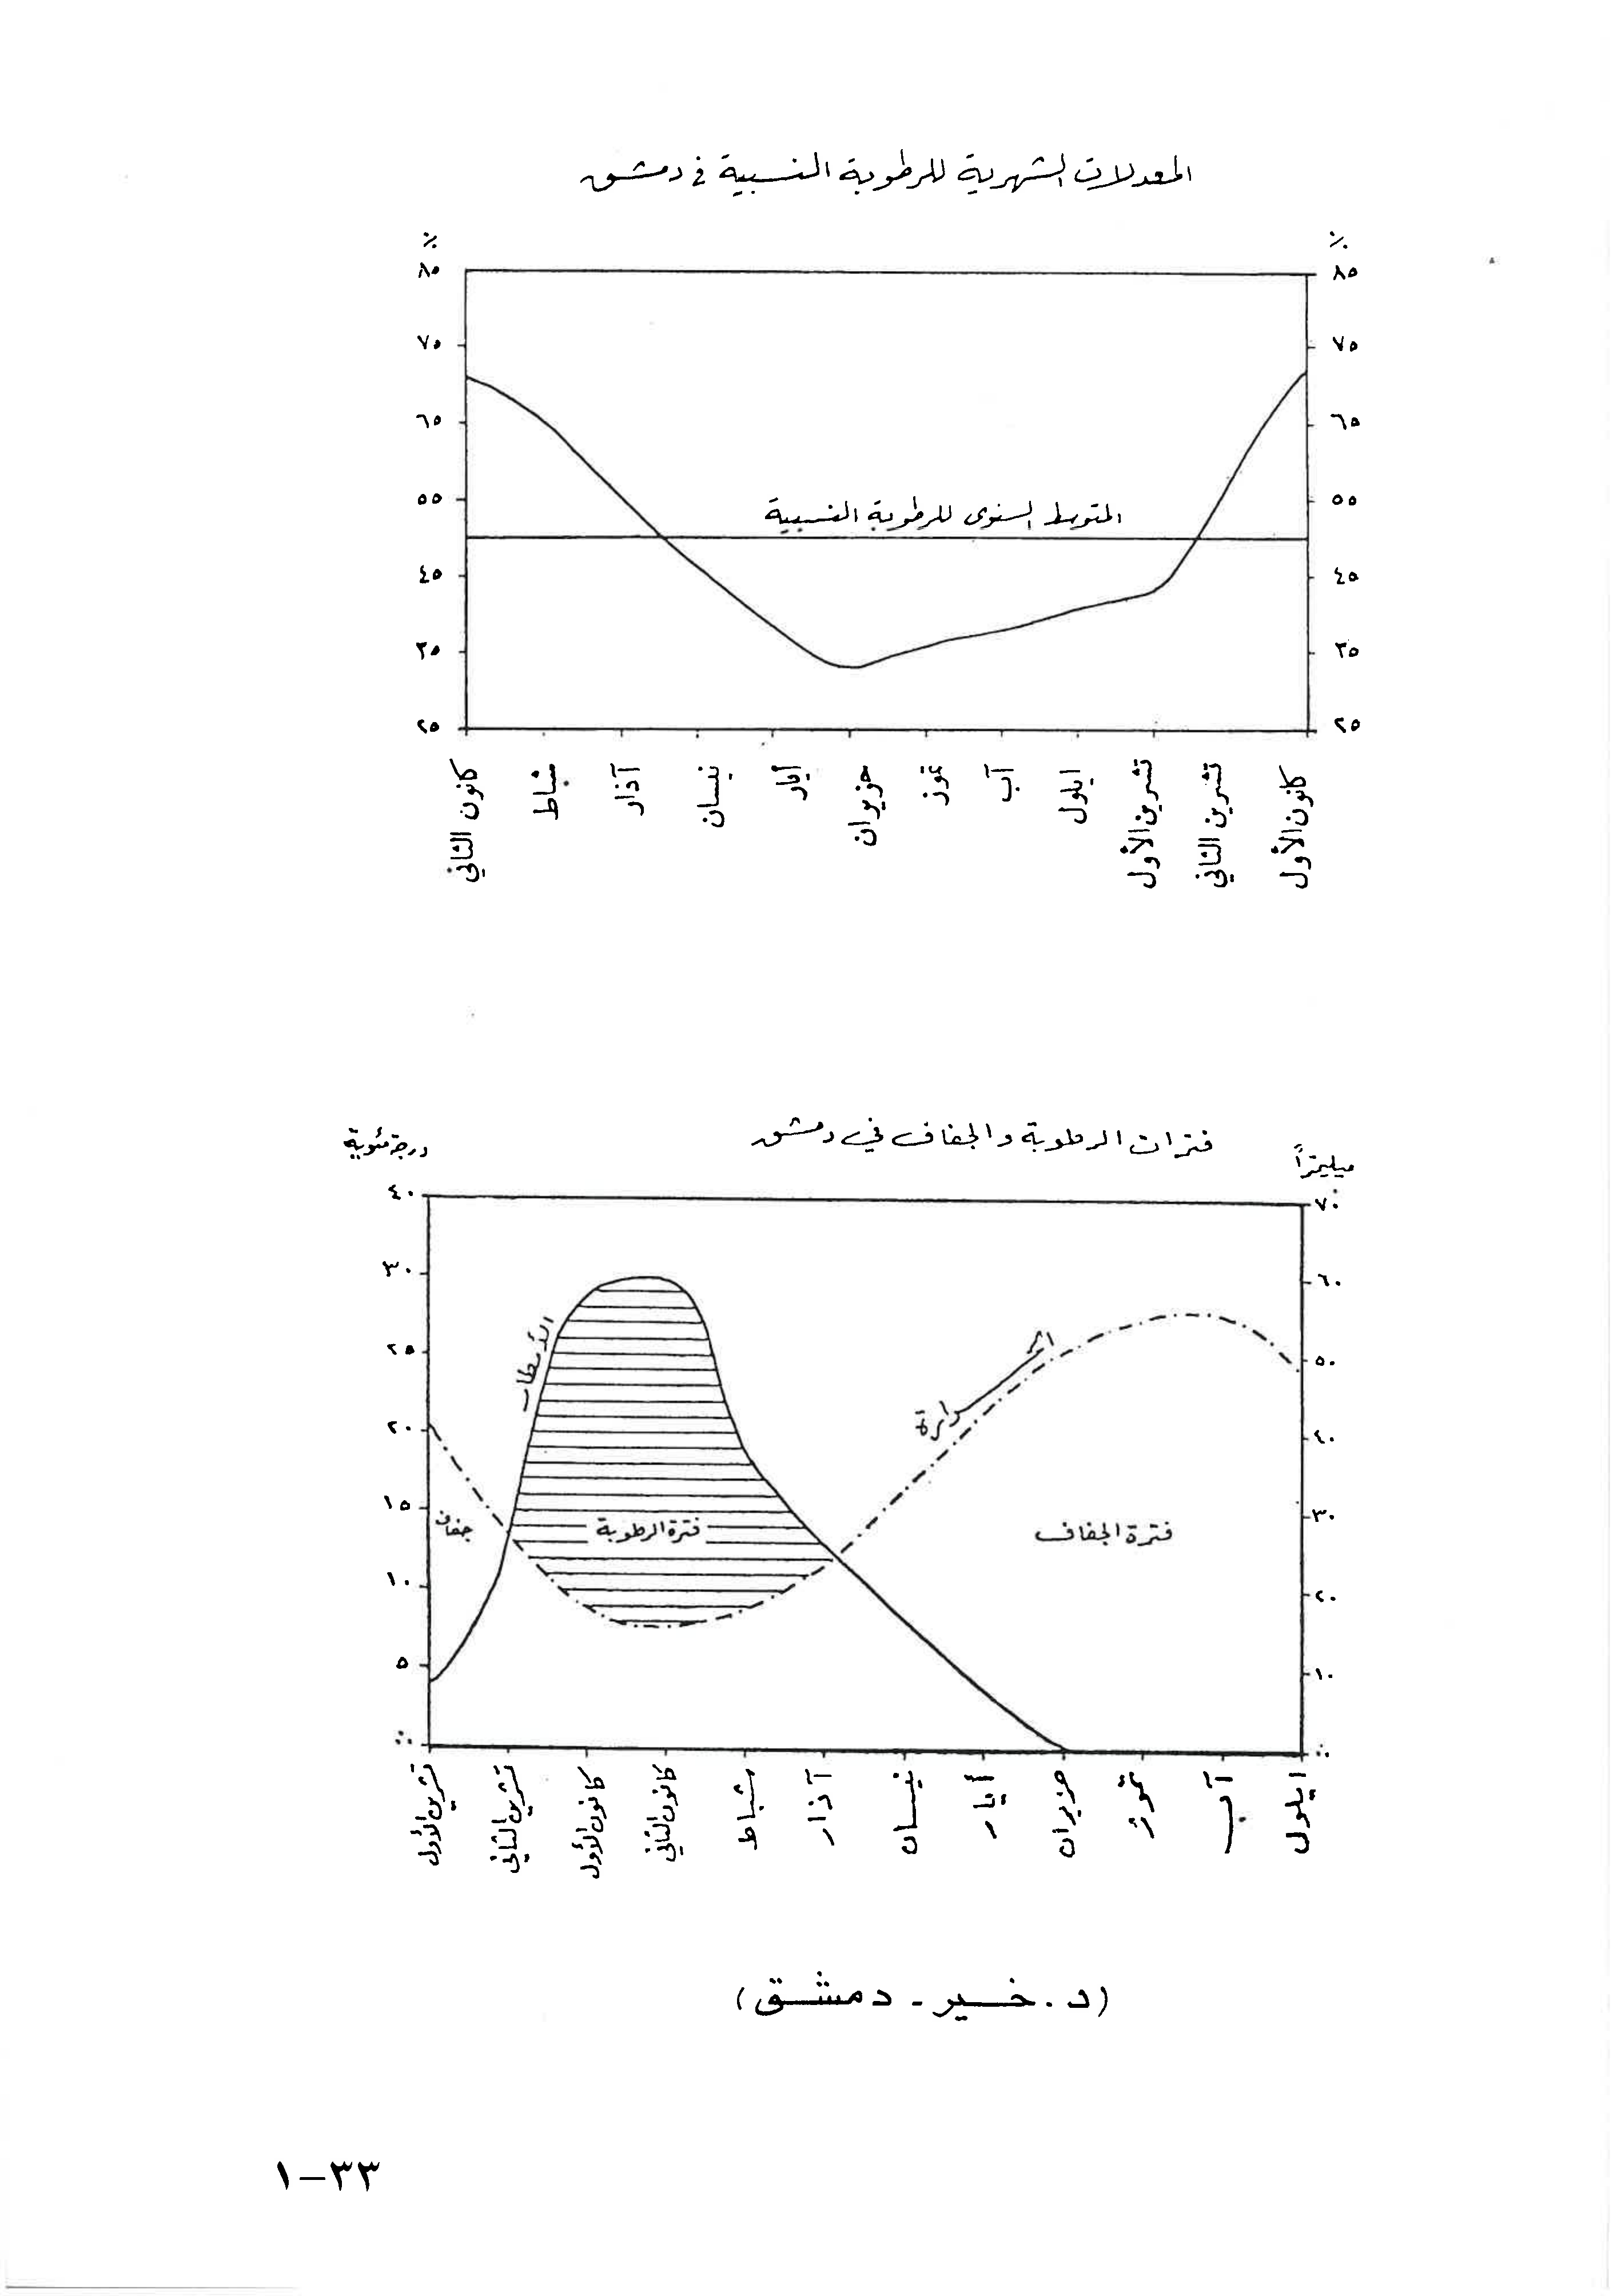 المعدلات الشهرية للرطوبة النسبية في دمشق
٪ ٪
٨٥ ٨٥
٧٥ ٧٥
٦٥ ٦٥
٥٥ ٥٥
المتوسط السنوي للرطوبة النسبية
٤٥ ٤٥
٣٥ ٣٥
٢٥ ٢٥
كانون الثاني شباط آذار نيسان أيار حزيران تموز آب ايلول تشرين الأول تشرين الثاني كانون الأول
فترات الرطوبة والجفاف في دمشق
درجة مئوية ميليمتراً
٤٠ ٧٠
٣٠ ٦٠
٢٥ ٥٠
٢٠ ٤٠
١٥ ٣٠
١٠ ٢٠
٥ ١٠
الأمطار
الحرارة
جفاف فترة الرطوبة فترة الجفاف
تشرين الأول تشرين الثاني كانون الأول كانون الثاني شباط آذار نيسان أيار حزيران تموز آب ايلول
(د. خير - دمشق)
٣٣-١